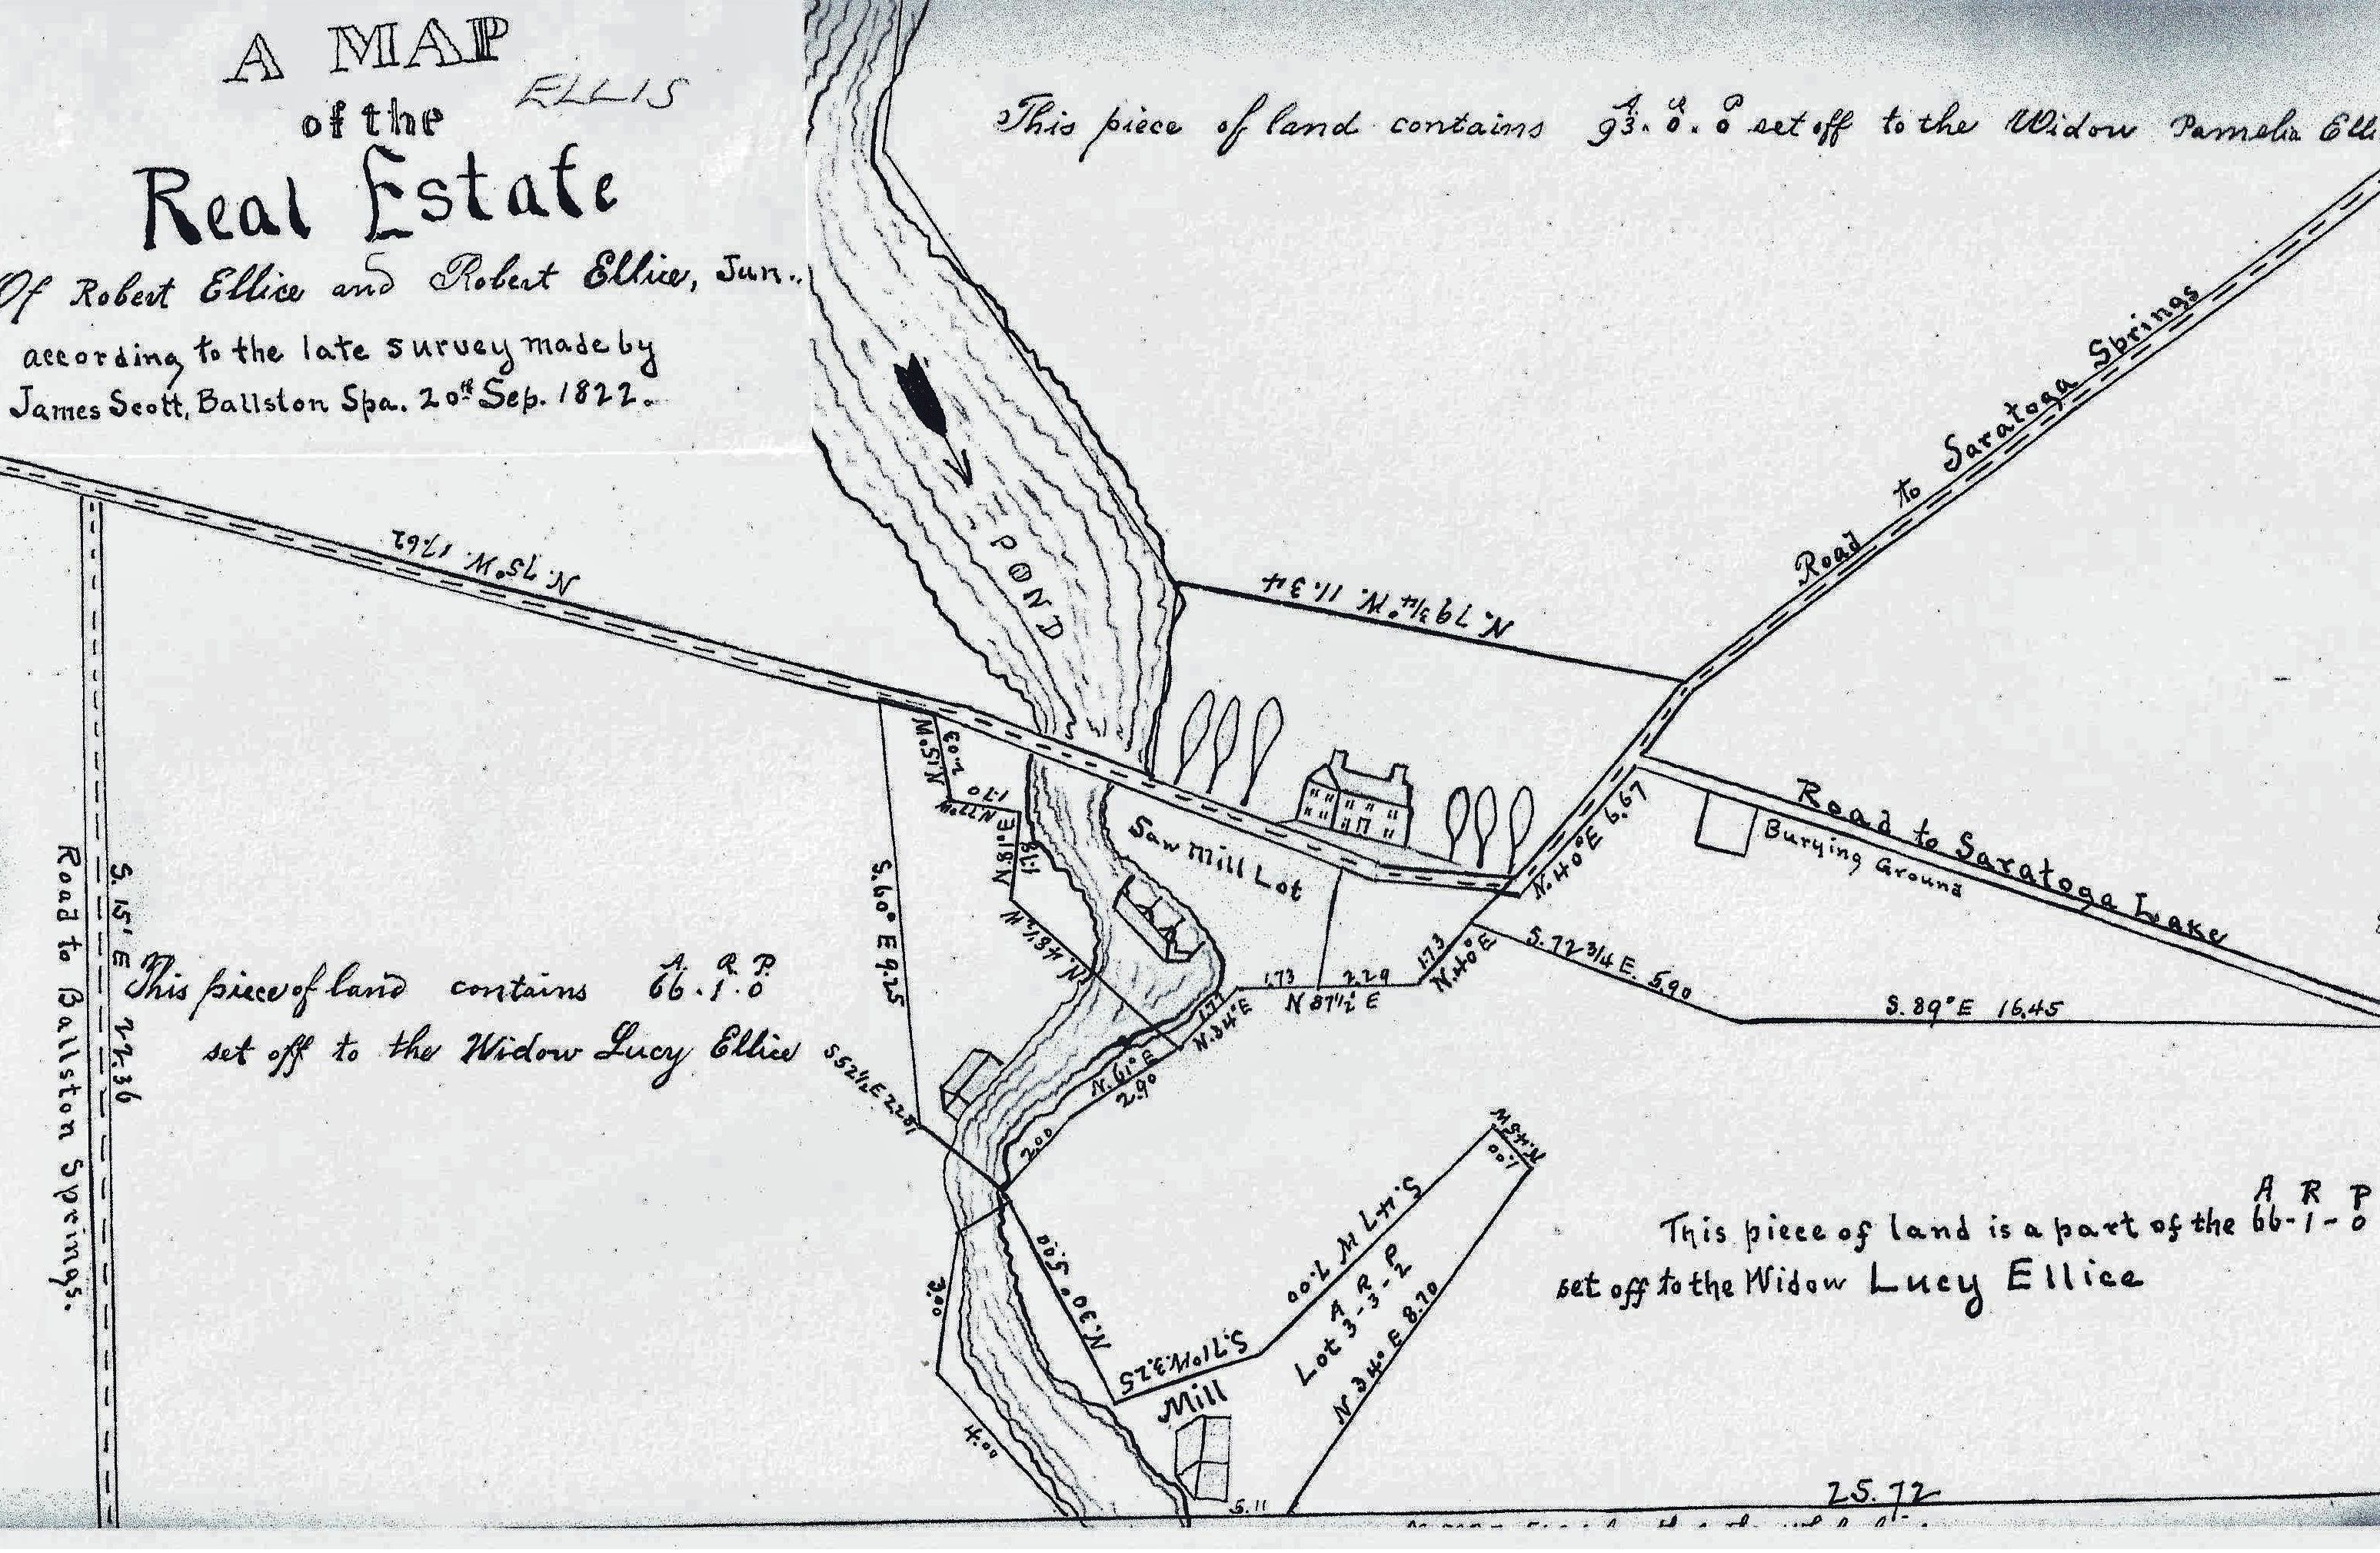 A MAP
ELLIS
of the
Real Estate
Of Robert Ellice and Robert Ellice, Jun.
according to the late survey made by
James Scott, Ballston Spa. 20th Sep. 1822.
A. R. P.
This piece of land contains 93. 0. 0 set off to the Widow Pamelia Elli
POND
N. 75° W. 17.62
N. 79 3/4° W. 11.34
Road to Saratoga Springs
Road to Saratoga Lake
Burying Ground
Saw Mill Lot
N. 15° W
2.03
N 77° W
1.70
N 81° E
1.78
N. 48 1/2 W
S. 60° E 9.25
S 52 1/2 E 2.28
N. 40° E 6.67
1.73
N. 40° E
S. 72 3/4 E. 5.90
S. 89° E 16.45
1.73 2.29
N 87 1/2° E
1.77
N. 34° E
N. 61° E
2.90
2.00
S. 15° E 22.36
Road to Ballston Springs.
A. R. P.
This piece of land contains 66. 1. 0
set off to the Widow Lucy Ellice
N. 45 W
1.00
S. 47 W 7.00
A R P
Lot 3-3-2
N 34° E 8.70
N. 30° 5.00
S. 71° W. 3.25
Mill
3.00
4.00
5.11
A R P
This piece of land is a part of the 66-1-0
set off to the Widow Lucy Ellice
25.72